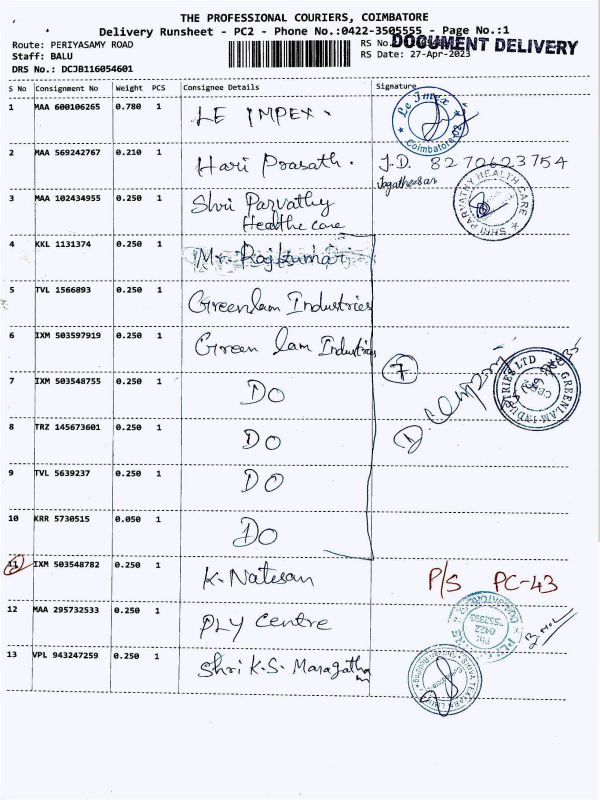 THE PROFESSIONAL COURIERS, COIMBATORE
Delivery Runsheet - PC2 - Phone No.:0422-3505555 - Page No.:1
Route: PERIYASAMY ROAD
Staff: BALU
DRS No.: DCJB116054601
RS No.
DOCUMENT DELIVERY
RS Date: 27-Apr-2023
S No Consignment No Weight PCS Consignee Details Signature
1 MAA 600106265 0.780 1 LE IMPEX. Le Impex Coimbatore
2 MAA 569242767 0.210 1 Hari Prasath. J.D. 8270623754
Jagatheesan
3 MAA 102434955 0.250 1 Shri Parvathy
Healthe care
SHRI PARVATHY HEALTH CARE
4 KKL 1131374 0.250 1 Mr. Rajkumar
5 TVL 1566893 0.250 1 Greenlam Industries
6 IXM 503597919 0.250 1 Green lam Industries
7
GREENLAM INDUSTRIES LTD
7 IXM 503548755 0.250 1 DO
8 TRZ 145673601 0.250 1 DO
9 TVL 5639237 0.250 1 DO
10 KRR 5730515 0.050 1 DO
11 IXM 503548782 0.250 1 K. Natesan P/S PC-43
12 MAA 295732533 0.250 1 PLY Centre
13 VPL 943247259 0.250 1 Shri K.S. Maragatham